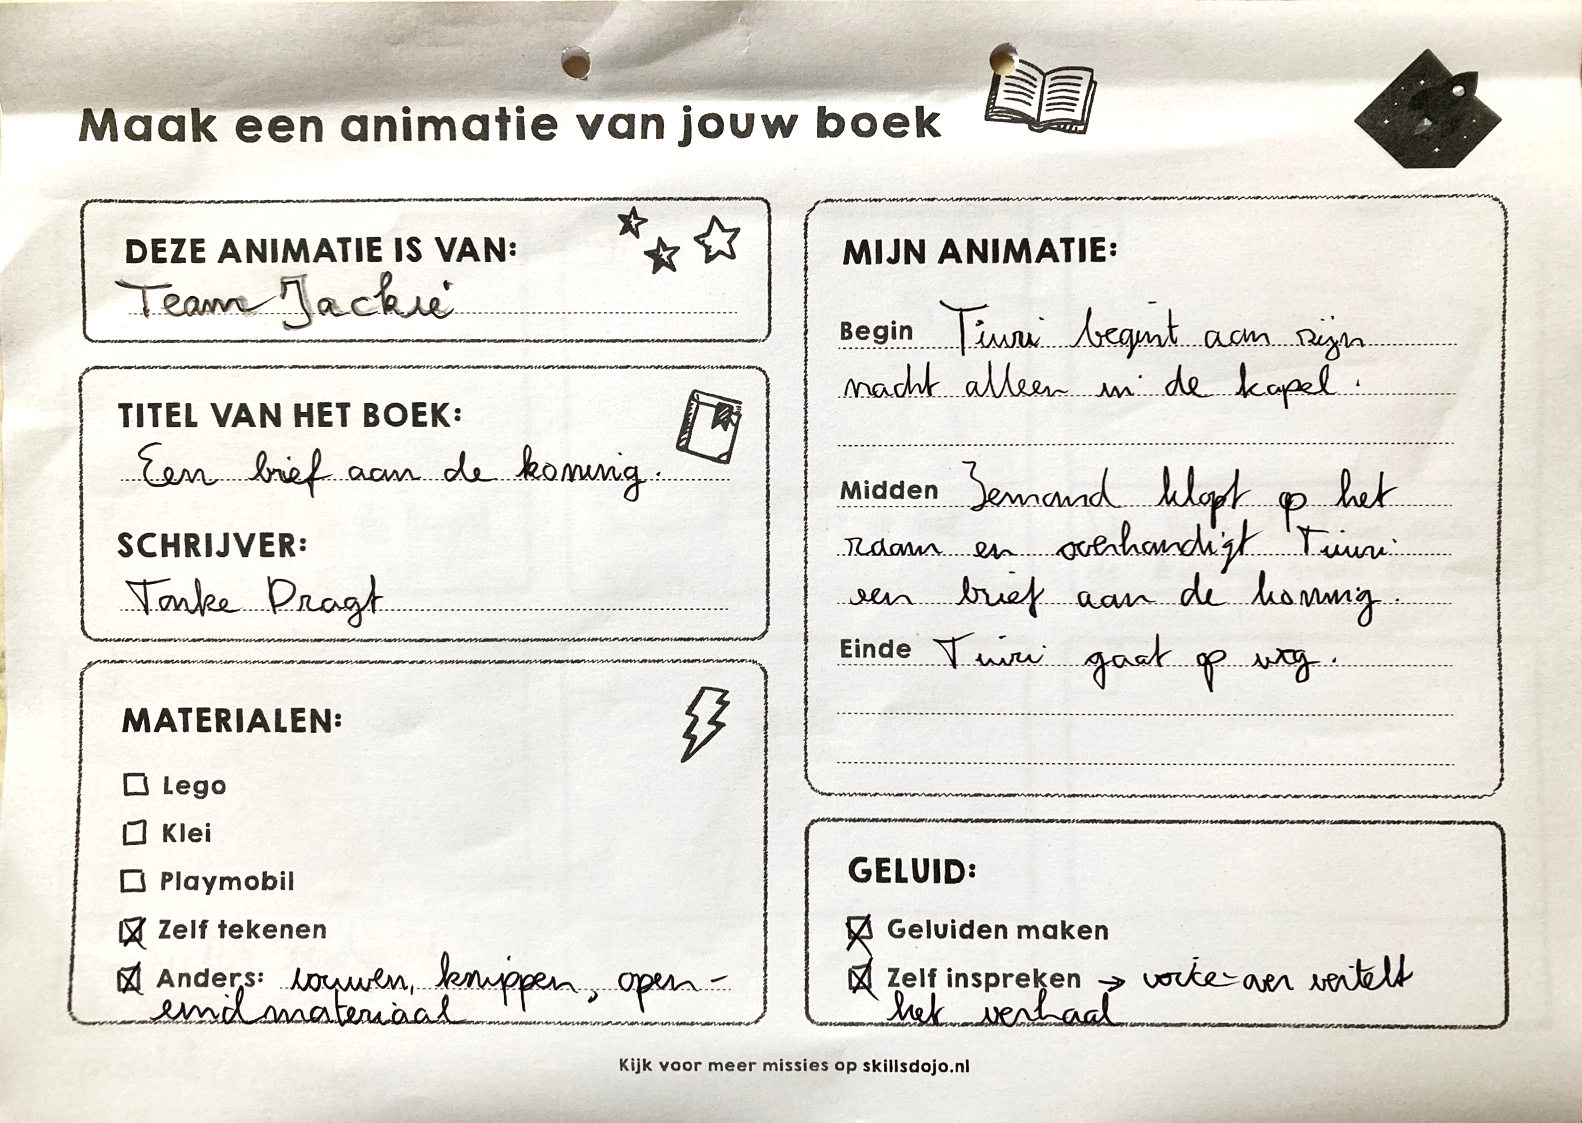 Maak een animatie van jouw boek
DEZE ANIMATIE IS VAN:
Team Jackie
TITEL VAN HET BOEK:
Een brief aan de koning.
SCHRIJVER:
Tonke Dragt
MATERIALEN:
Lego
Klei
Playmobil
Zelf tekenen
Anders: vouwen, knippen, open-
eindmateriaal
MIJN ANIMATIE:
Begin Tiuri begint aan zijn
nacht alleen in de kapel.
Midden Iemand klopt op het
raam en overhandigt Tiuri
een brief aan de koning.
Einde Tiuri gaat op weg.
GELUID:
Geluiden maken
Zelf inspreken → voice-over vertelt
het verhaal
Kijk voor meer missies op skillsdojo.nl